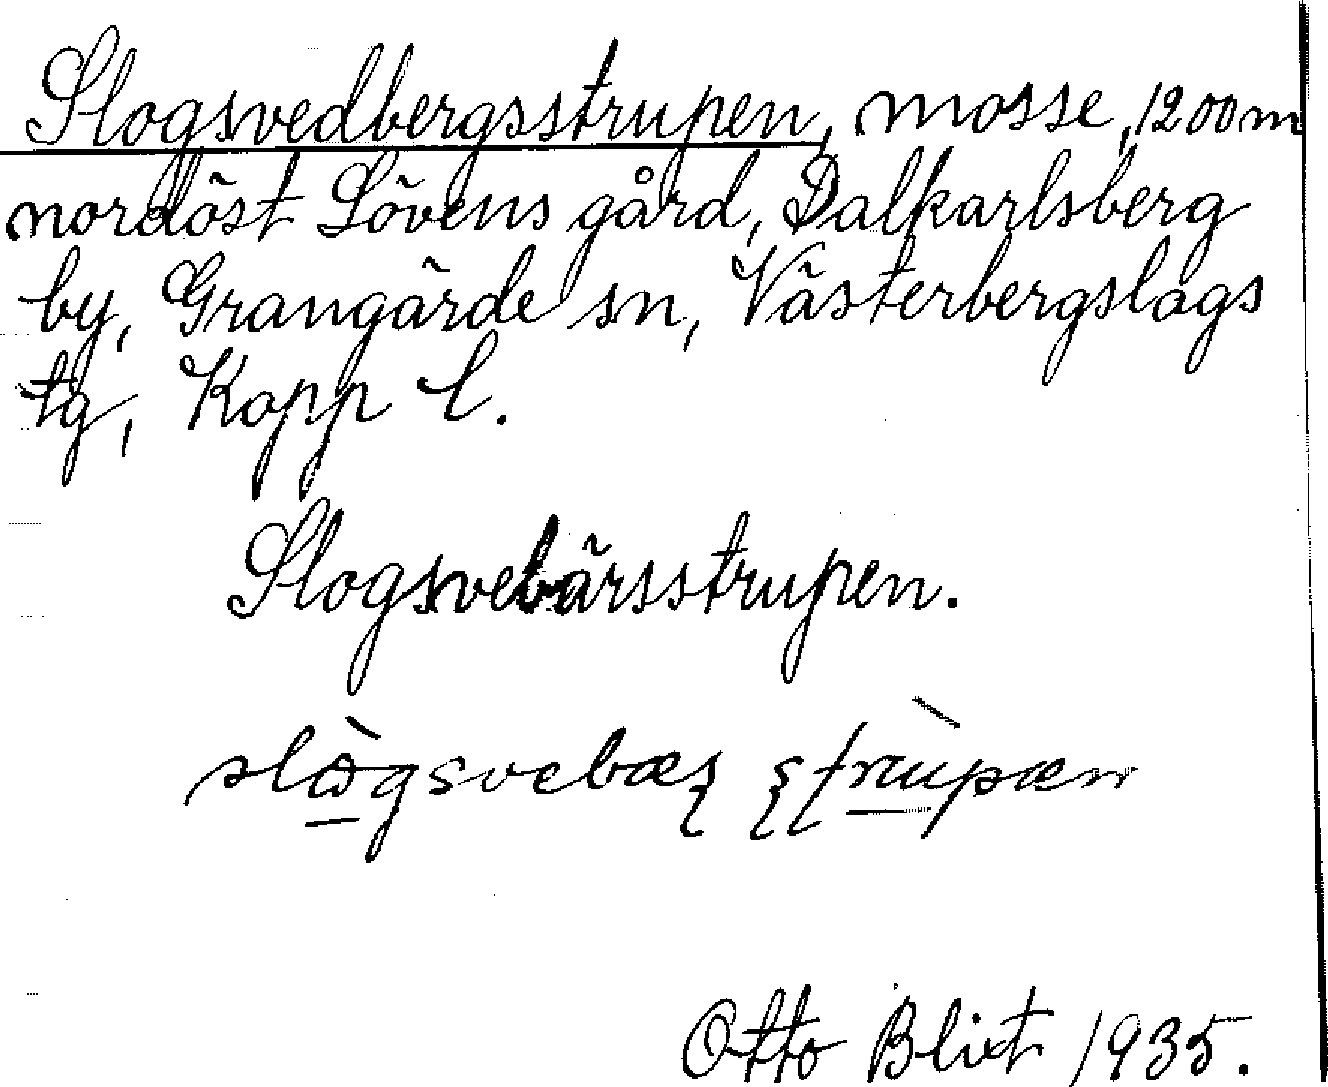 Slogsvedbergsstrupen, mosse, 1200 m
nordöst Lövens gård, Dalkarlsberg
by, Grangärde sn, Västerbergslags
tg, Kopp l.
Slogsvebärsstrupen.
Otto Blixt 1935.